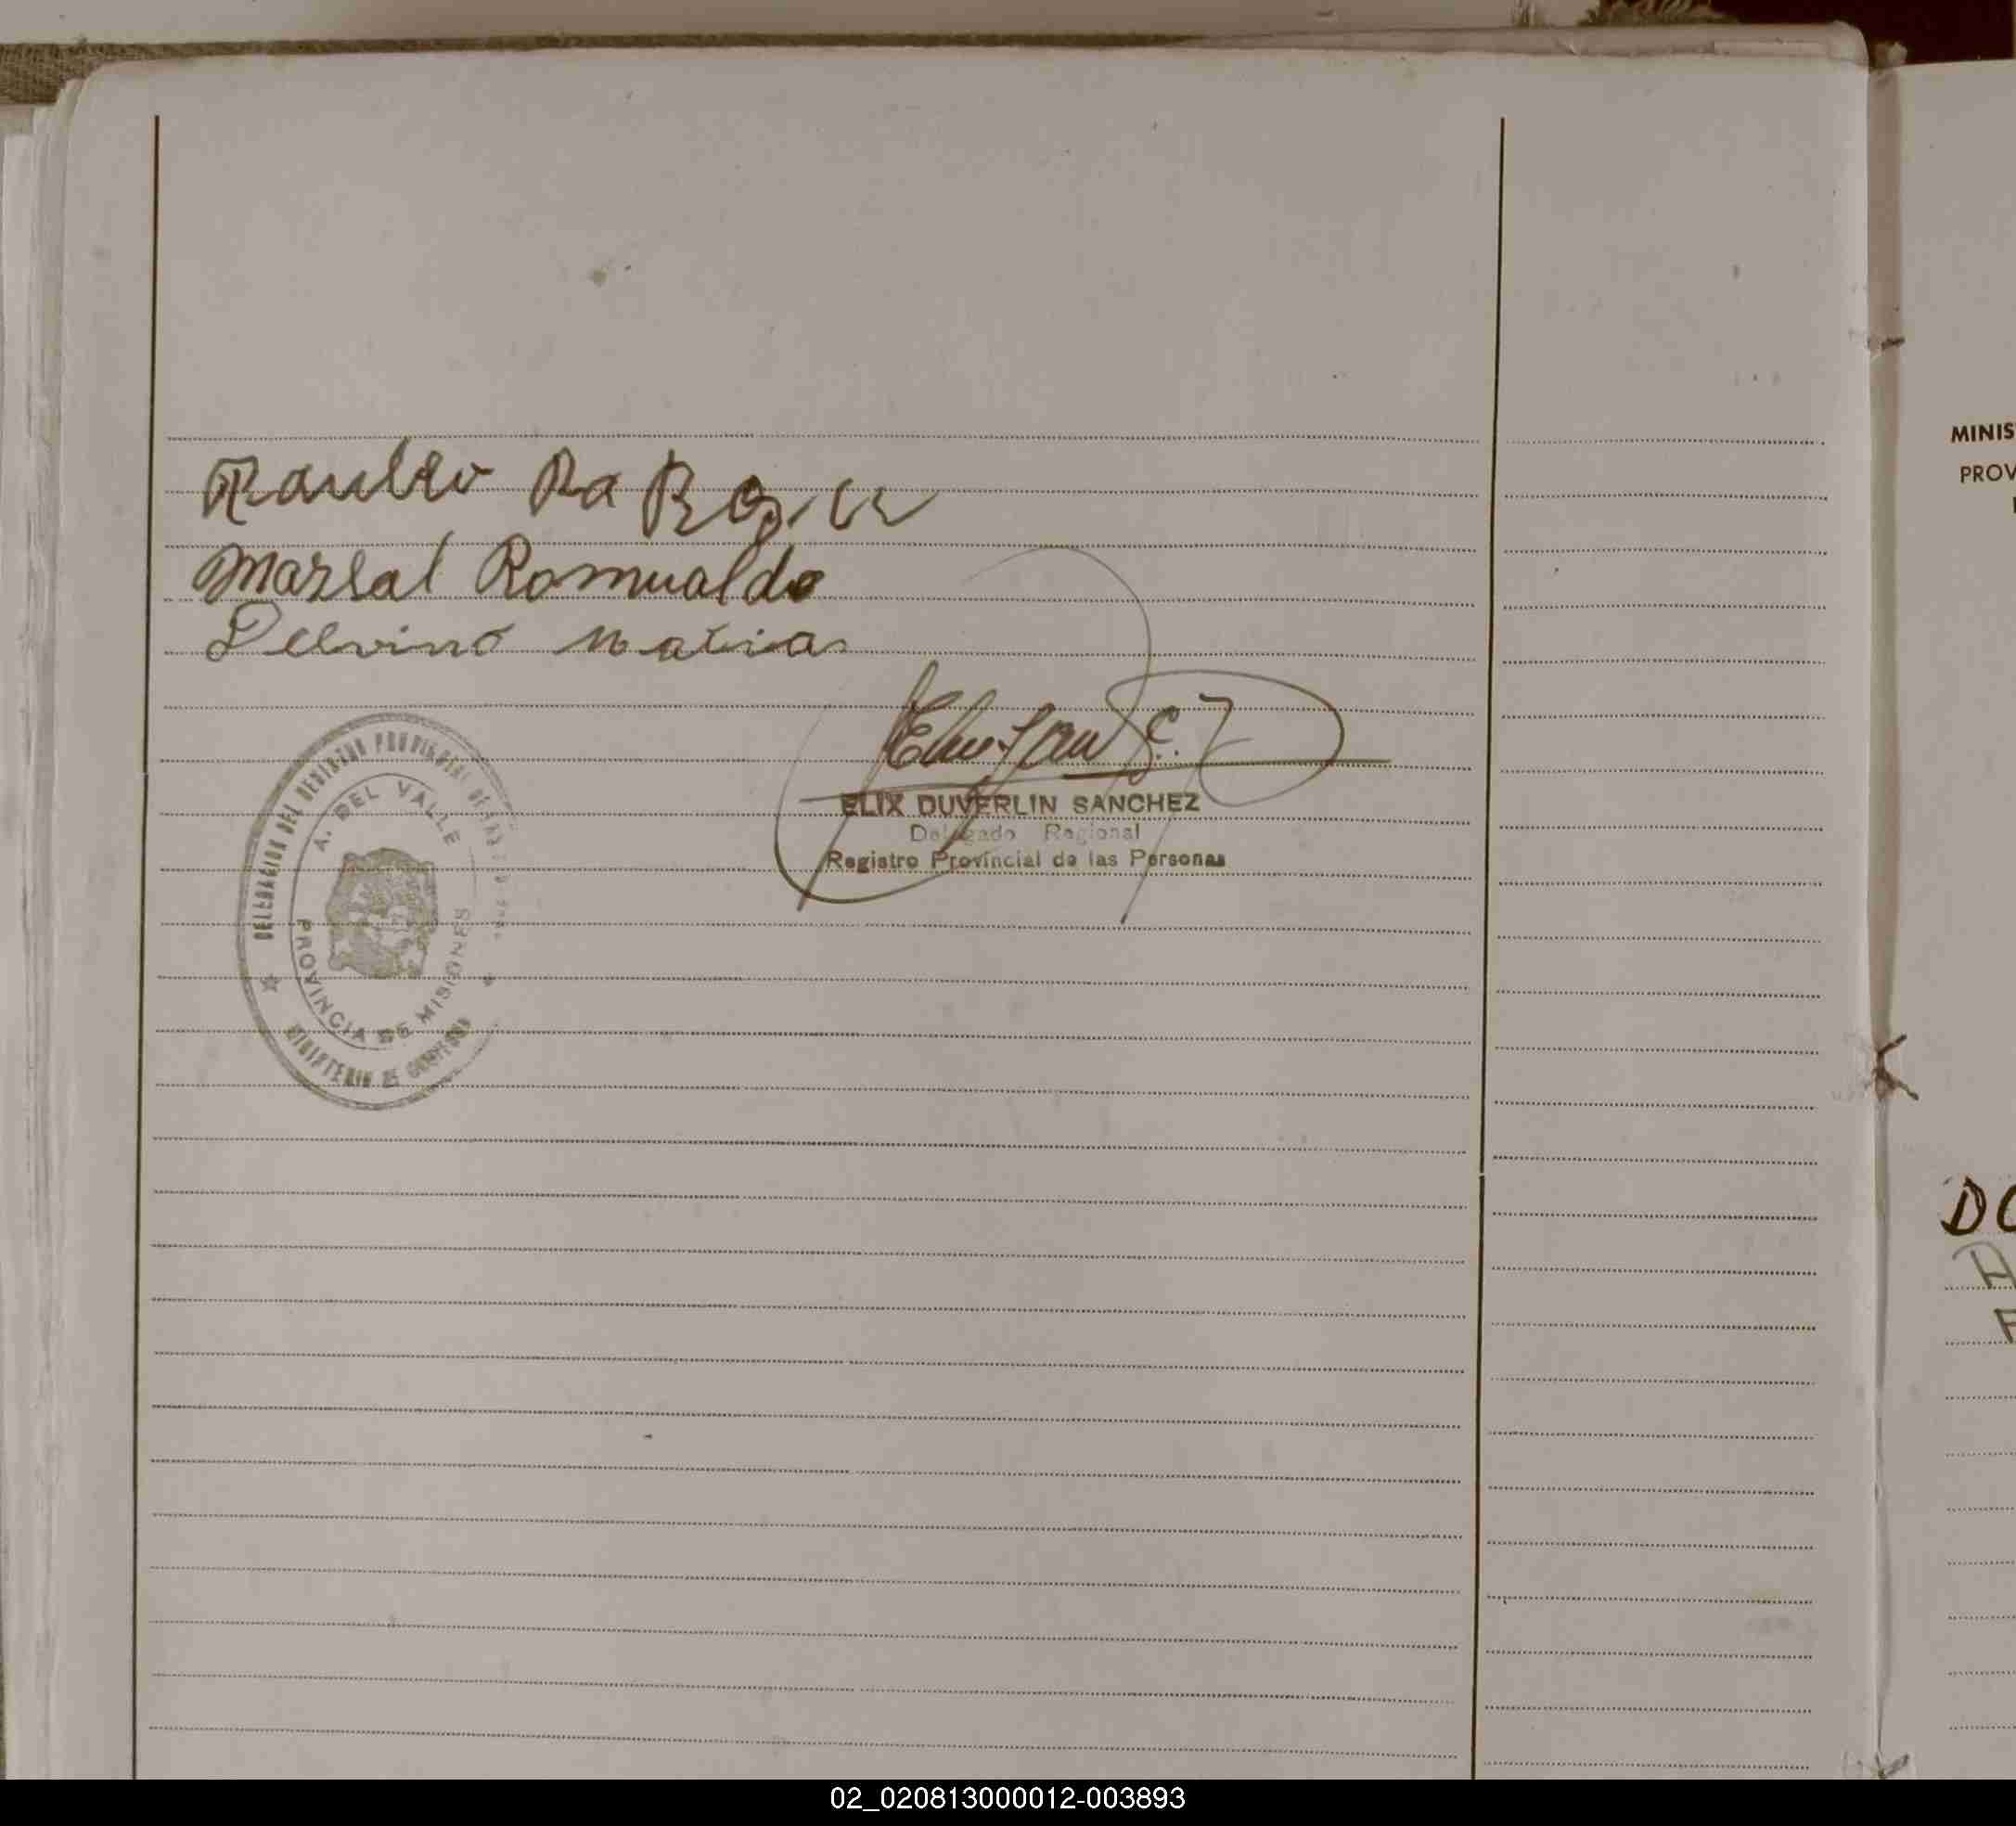 Marsal Romualdo
Delvino Matias
ELIX DUVERLIN SANCHEZ
Delegado Regional
Registro Provincial de las Personas
DELEGACION DEL REGISTRO PROVINCIAL DE LAS
A. DEL VALLE
PROVINCIA DE MISIONES
MINISTERIO DE GOBIERNO
MINIS
PROV
DO
02_020813000012-003893